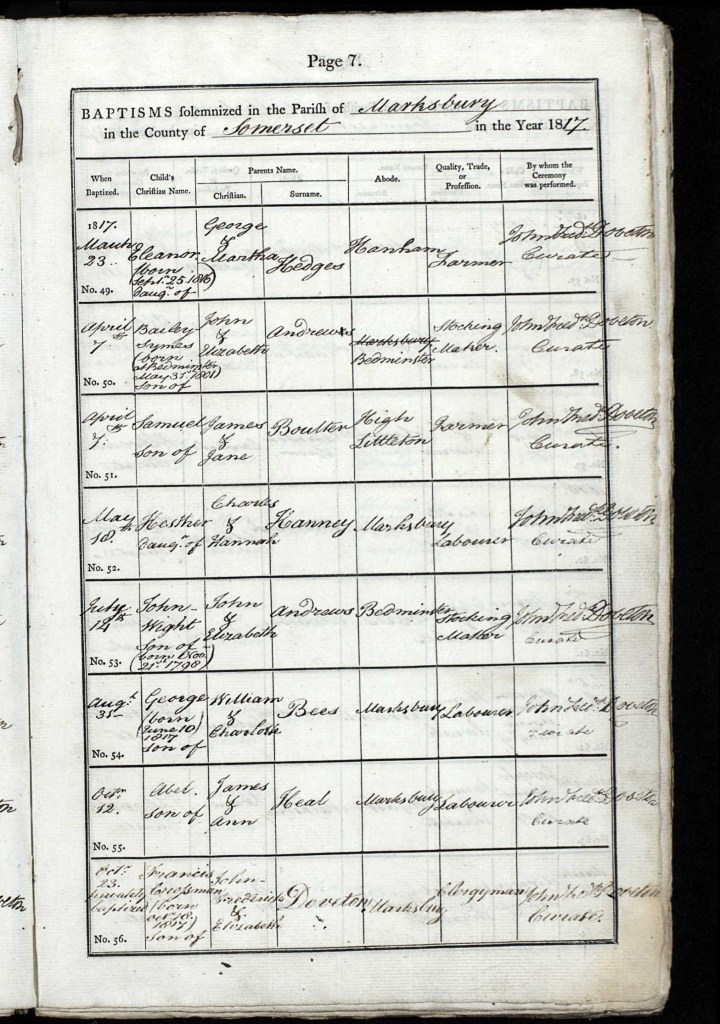 Page 7.
BAPTISMS solemnized in the Parish of Marksbury
in the County of Somerset in the Year 1817.
When Baptized.
Child's Christian Name.
Parents Name.
Christian.
Surname.
Abode.
Quality, Trade, or Profession.
By whom the Ceremony was performed.
1817.
March
23
No. 49.
Eleanor
(born
Sept. 25 1816)
daugr. of
George
&
Martha
Hedges
Hanham
Farmer
John Fredk. Doveton
Curate
April
7th
No. 50.
Bailey
Symes
(born
at Bedminster
May 31st 1801)
son of
John
&
Elizabeth
Andrews
Marksbury
Bedminster
Stocking
Maker.
John Fredk. Doveton
Curate
April
7th
No. 51.
Samuel
son of
James
&
Jane
Boulter
High
Littleton
Farmer
John Fredk. Doveton
Curate.
May
18th
No. 52.
Hesther
daugr. of
Charles
&
Hannah
Hanney
Marksbury
Labourer
John Fredk. Doveton
Curate
July
14th
No. 53.
John-
Wight
son of
(born
21st 1798)
John
&
Elizabeth
Andrews
Bedminster
Stocking
Maker
John Fredk. Doveton
Curate
Augt.
31st
No. 54.
George
(born
June 10)
1817
son of
William
&
Charlotte
Bees
Marksbury
Labourer
John Fredk. Doveton
Curate
Octr.
12.
No. 55.
Abel.
son of
James
&
Ann
Heal
Marksbury
Labourer
John Fredk. Doveton
Curate
Octr.
23.
privately
baptized
No. 56.
Francis
Crossman
(born
Octr. 18.
1817)
son of
John-
Frederick
&
Elizabeth
Doveton
Marksbury
Clergyman
John Fredk. Doveton
Curate.